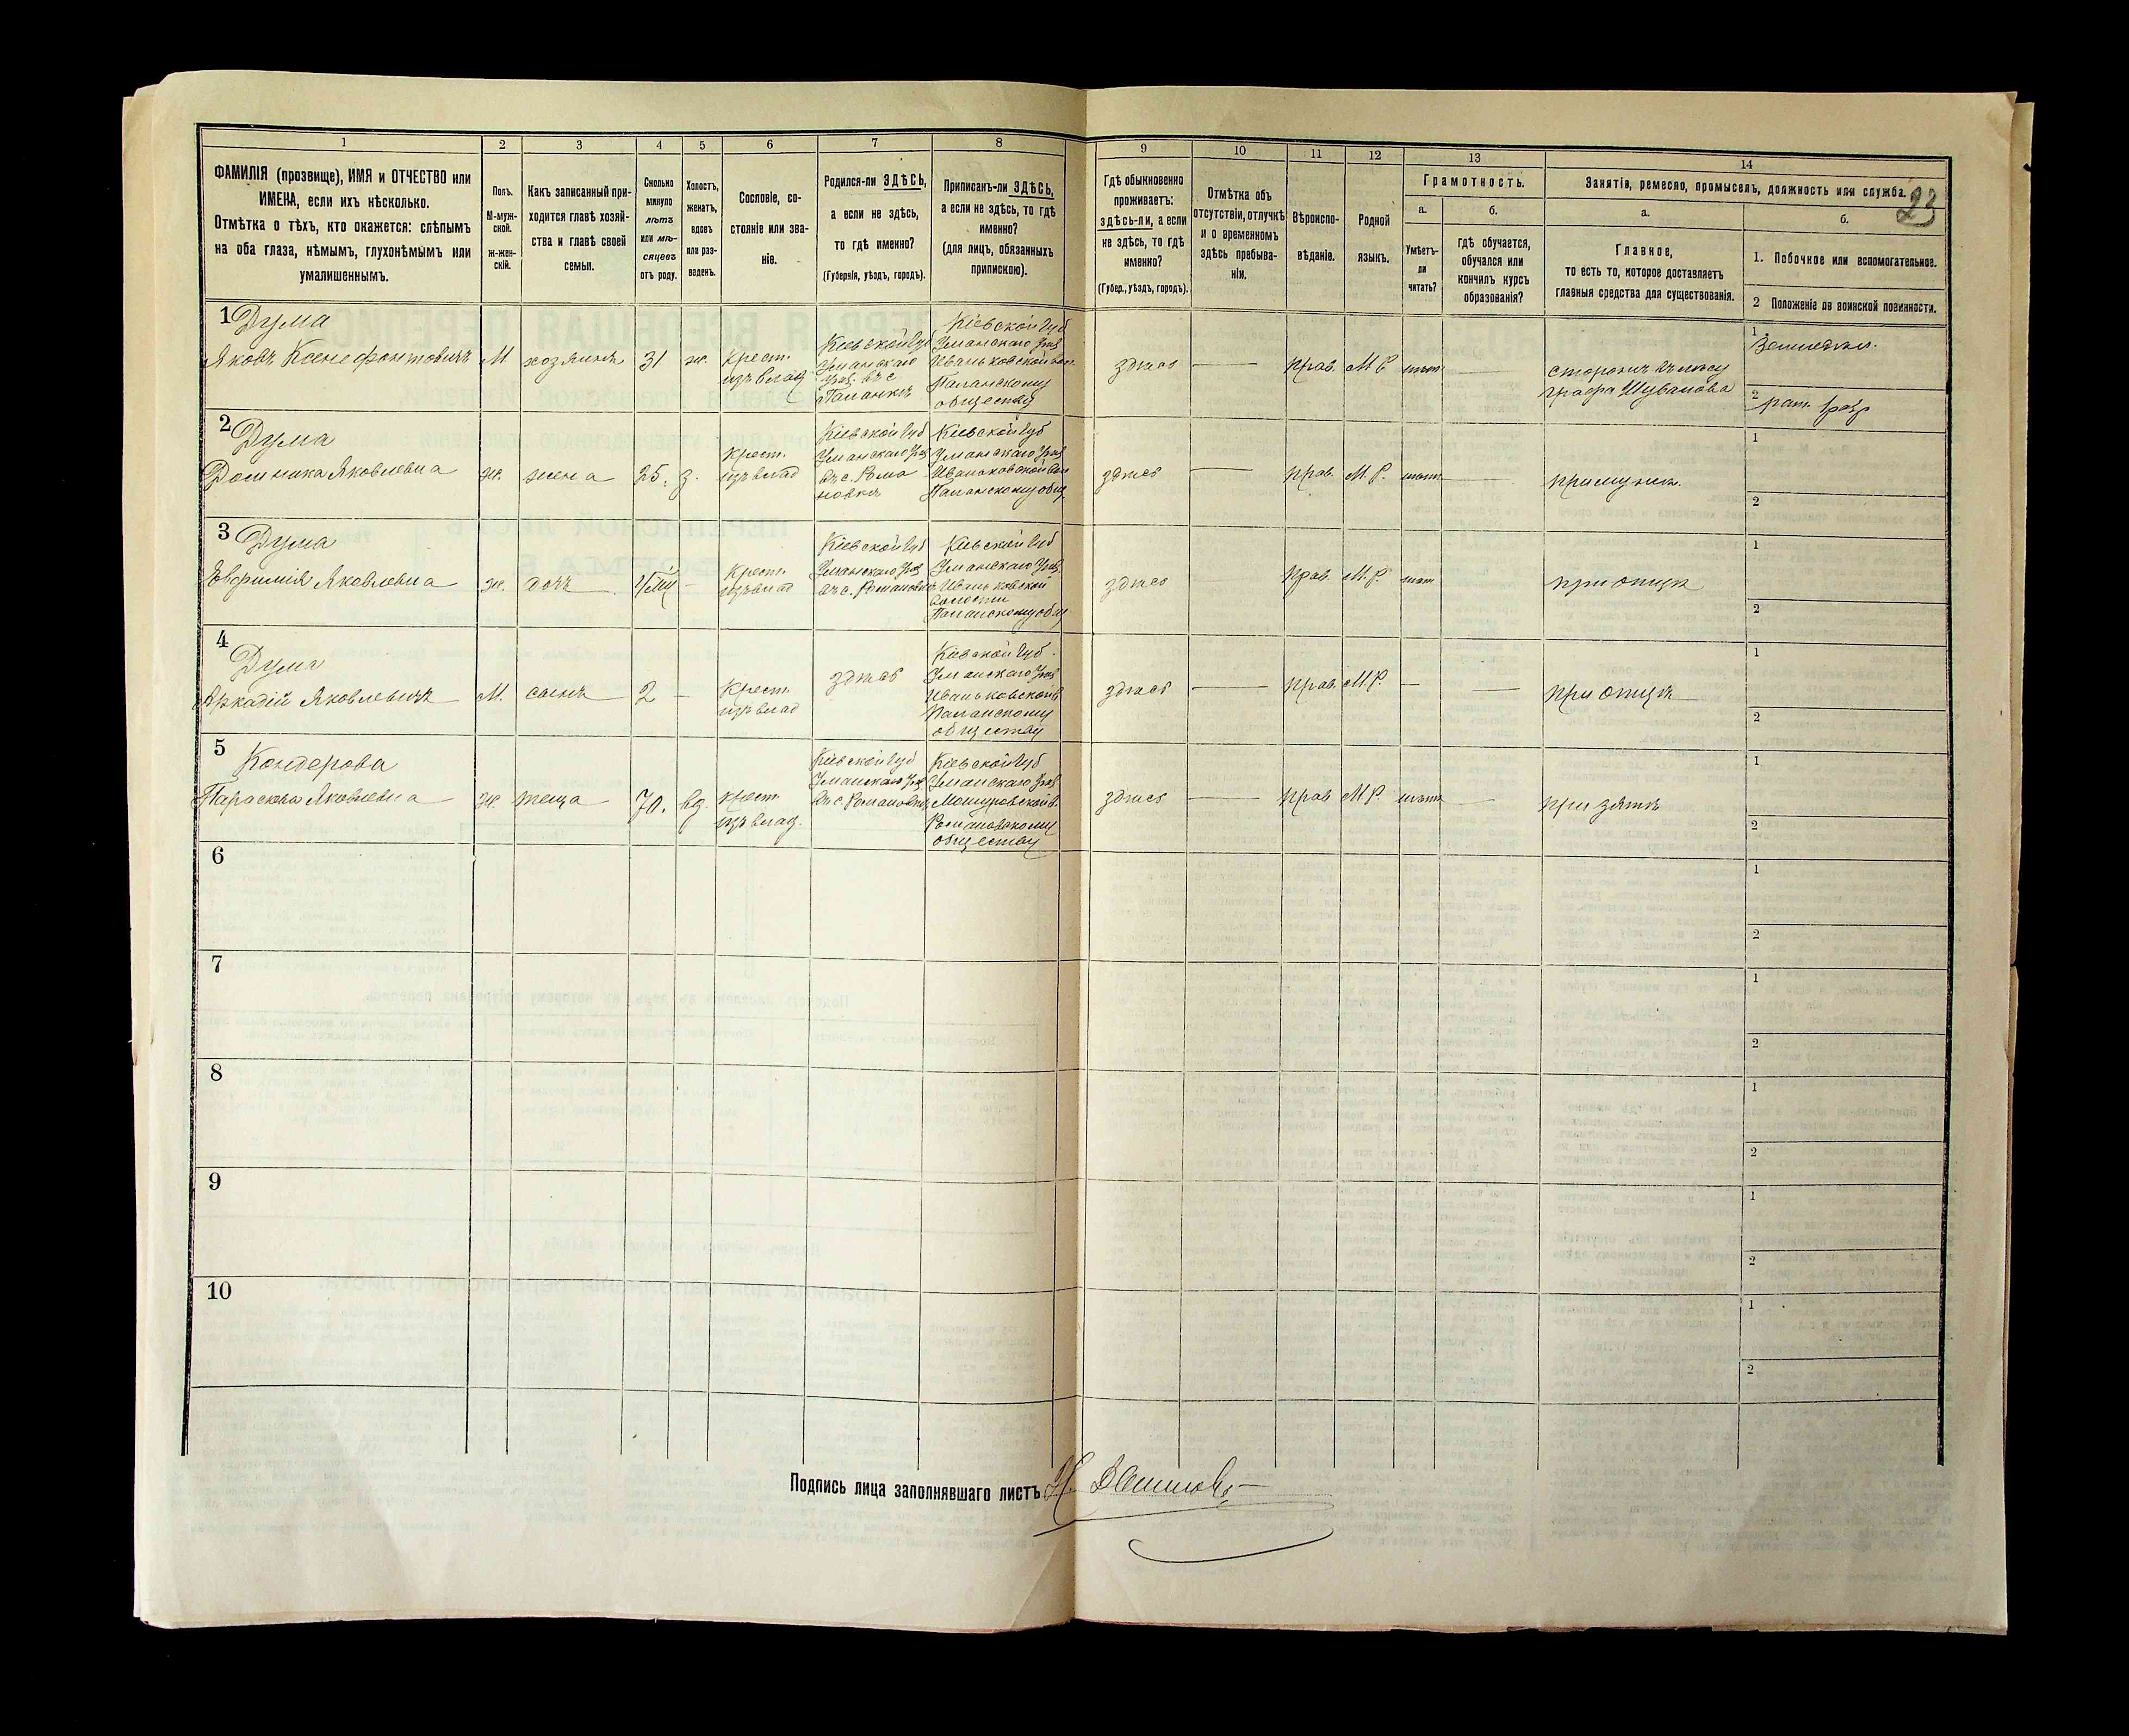 1
2
3
4
5
6
7
8
ФАМИЛІЯ (прозвище), ИМЯ и ОТЧЕСТВО или
ИМЕНА, если ихъ нѣсколько.
Отмѣтка о тѣхъ, кто окажется: слѣпымъ
на оба глаза, нѣмымъ, глухонѣмымъ или
умалишеннымъ.
Полъ.
М-муж-
ской.
ж-жен-
скій.
Какъ записанный при-
ходится главѣ хозяй-
ства и главѣ своей
семьи.
Сколько
минуло
лѣтъ
или мѣ-
сяцевъ
отъ роду.
Холостъ,
женатъ,
вдовъ
или раз-
веденъ.
Сословіе, со-
стояніе или зва-
ніе.
Родился-ли ЗДѢСЬ,
а если не здѣсь,
то гдѣ именно?
(Губернія, уѣздъ, городъ).
Приписанъ-ли ЗДѢСЬ,
а если не здѣсь, то гдѣ
именно?
(для лицъ, обязанныхъ
припискою).
9
10
11
12
13
14
Гдѣ обыкновенно
проживаетъ:
здѣсь-ли, а если
не здѣсь, то гдѣ
именно?
(Губер., уѣздъ, городъ).
Отмѣтка объ
отсутствіи, отлучкѣ
и о временномъ
здѣсь пребыва-
ніи.
Вѣроиспо-
вѣданіе.
Родной
языкъ.
Грамотность.
а.
б.
Умѣетъ-
ли
читать?
гдѣ обучается,
обучался или
кончилъ курсъ
образованія?
Занятія, ремесло, промыселъ, должность или служба.
23
а.
б.
Главное,
то есть то, которое доставляетъ
главныя средства для существованія.
1. Побочное или вспомогательное.
2 Положеніе по воинской повинности.
1 Дума
Яковъ Ксенофонтовичъ
М
хозяинъ
31
ж.
Крест.
изъ влад
Кіевской Губ
Уманскаго
Уѣз. въ с
Паланкѣ
Кіевской Губ
Уманскаго Уѣз
Иваньковской вол
Паланскому
обществу
здѣсь
Прав.
М Р
нѣтъ
сторожъ въ лѣсу
графа Шувалова
1
2
рат. 1 раз
2 Дума
Домникa Яковлевна
ж.
жена
25.
з.
Крест.
изъ влад
Кіевской Губ
Уманскаго Уѣз
въ с. Рома
новкѣ
Кіевской Губ
Уманскаго Уѣз
Иваньковской Вол
Паланскому общ
здѣсь
Прав.
М. Р.
нѣтъ
при мужѣ.
1
2
3 Дума
Евфимія Яковлевна
ж.
дочь
Крест.
изъ влад
Кіевской Губ
Уманскаго Уѣз
въ с. Романовкѣ
Кіевской Губ
Уманскаго Уѣз
Иваньковской
Волости
Паланскому общ
здѣсь
Прав.
М. Р.
нѣт
при отцѣ
1
2
4
Дума
Аркадій Яковлевичъ
М.
сынъ
2
Крест.
изъ влад
здѣсь
Кіевской Губ.
Уманскаго Уѣз
Иваньковской в
Паланскому
обществу
здѣсь
Прав.
М. Р.
при отцѣ
1
2
5
Кондерова
Параскева Яковлевна
ж
теща
70.
вд.
Крест.
изъ влад.
Кіевской Губ
Уманскаго Уѣз
въ с. Романовкѣ
Кіевской Губ
Уманскаго Уѣз
Романовскому
обществу
здѣсь
Прав
М Р.
нѣтъ
при зятѣ
1
2
6
1
2
7
1
2
8
1
2
9
1
2
10
1
2
Подпись лица заполнявшаго листъ